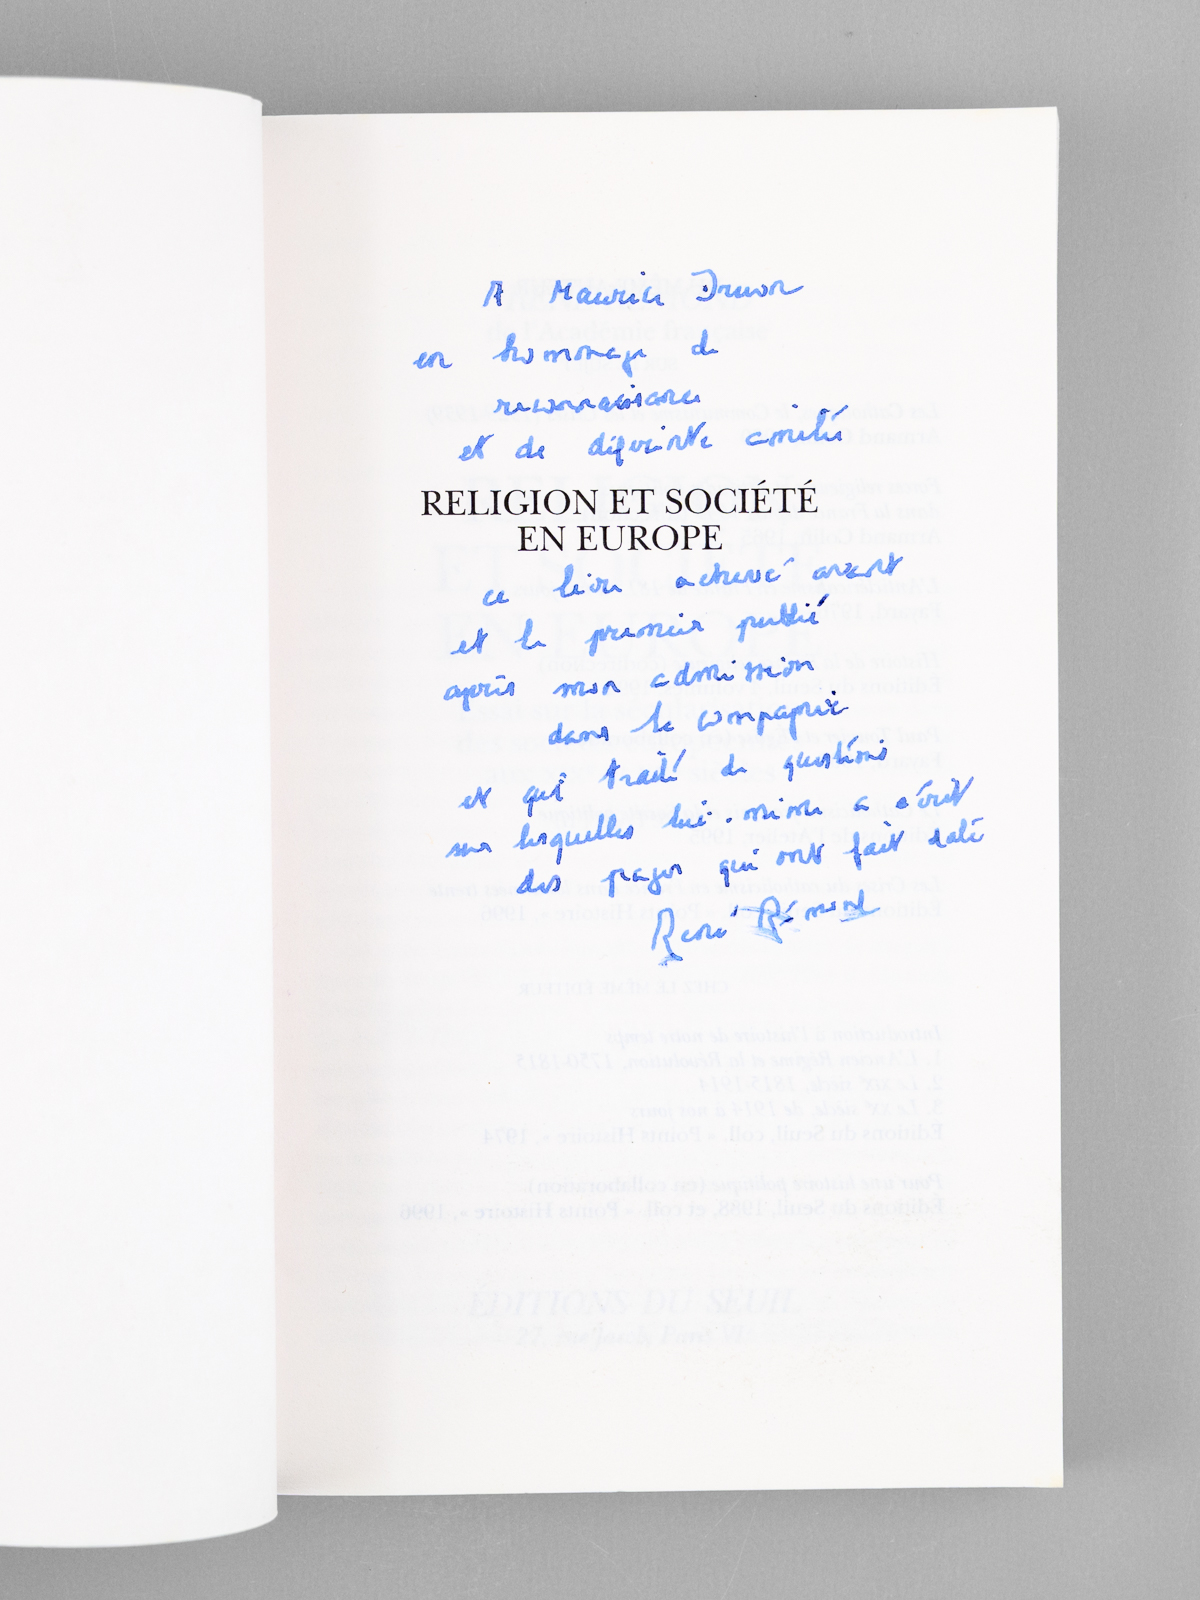 A Maurice Druon
en hommage de
reconnaissance
et de déférente amitié
RELIGION ET SOCIÉTÉ
EN EUROPE
ce livre achevé avant
et le premier publié
après mon admission
dans la compagnie
et qui traite de questions
sur lesquelles lui-même a écrit
des pages qui ont fait date
René Rémond
ÉDITIONS DU SEUIL
27, rue Jacob, Paris VI